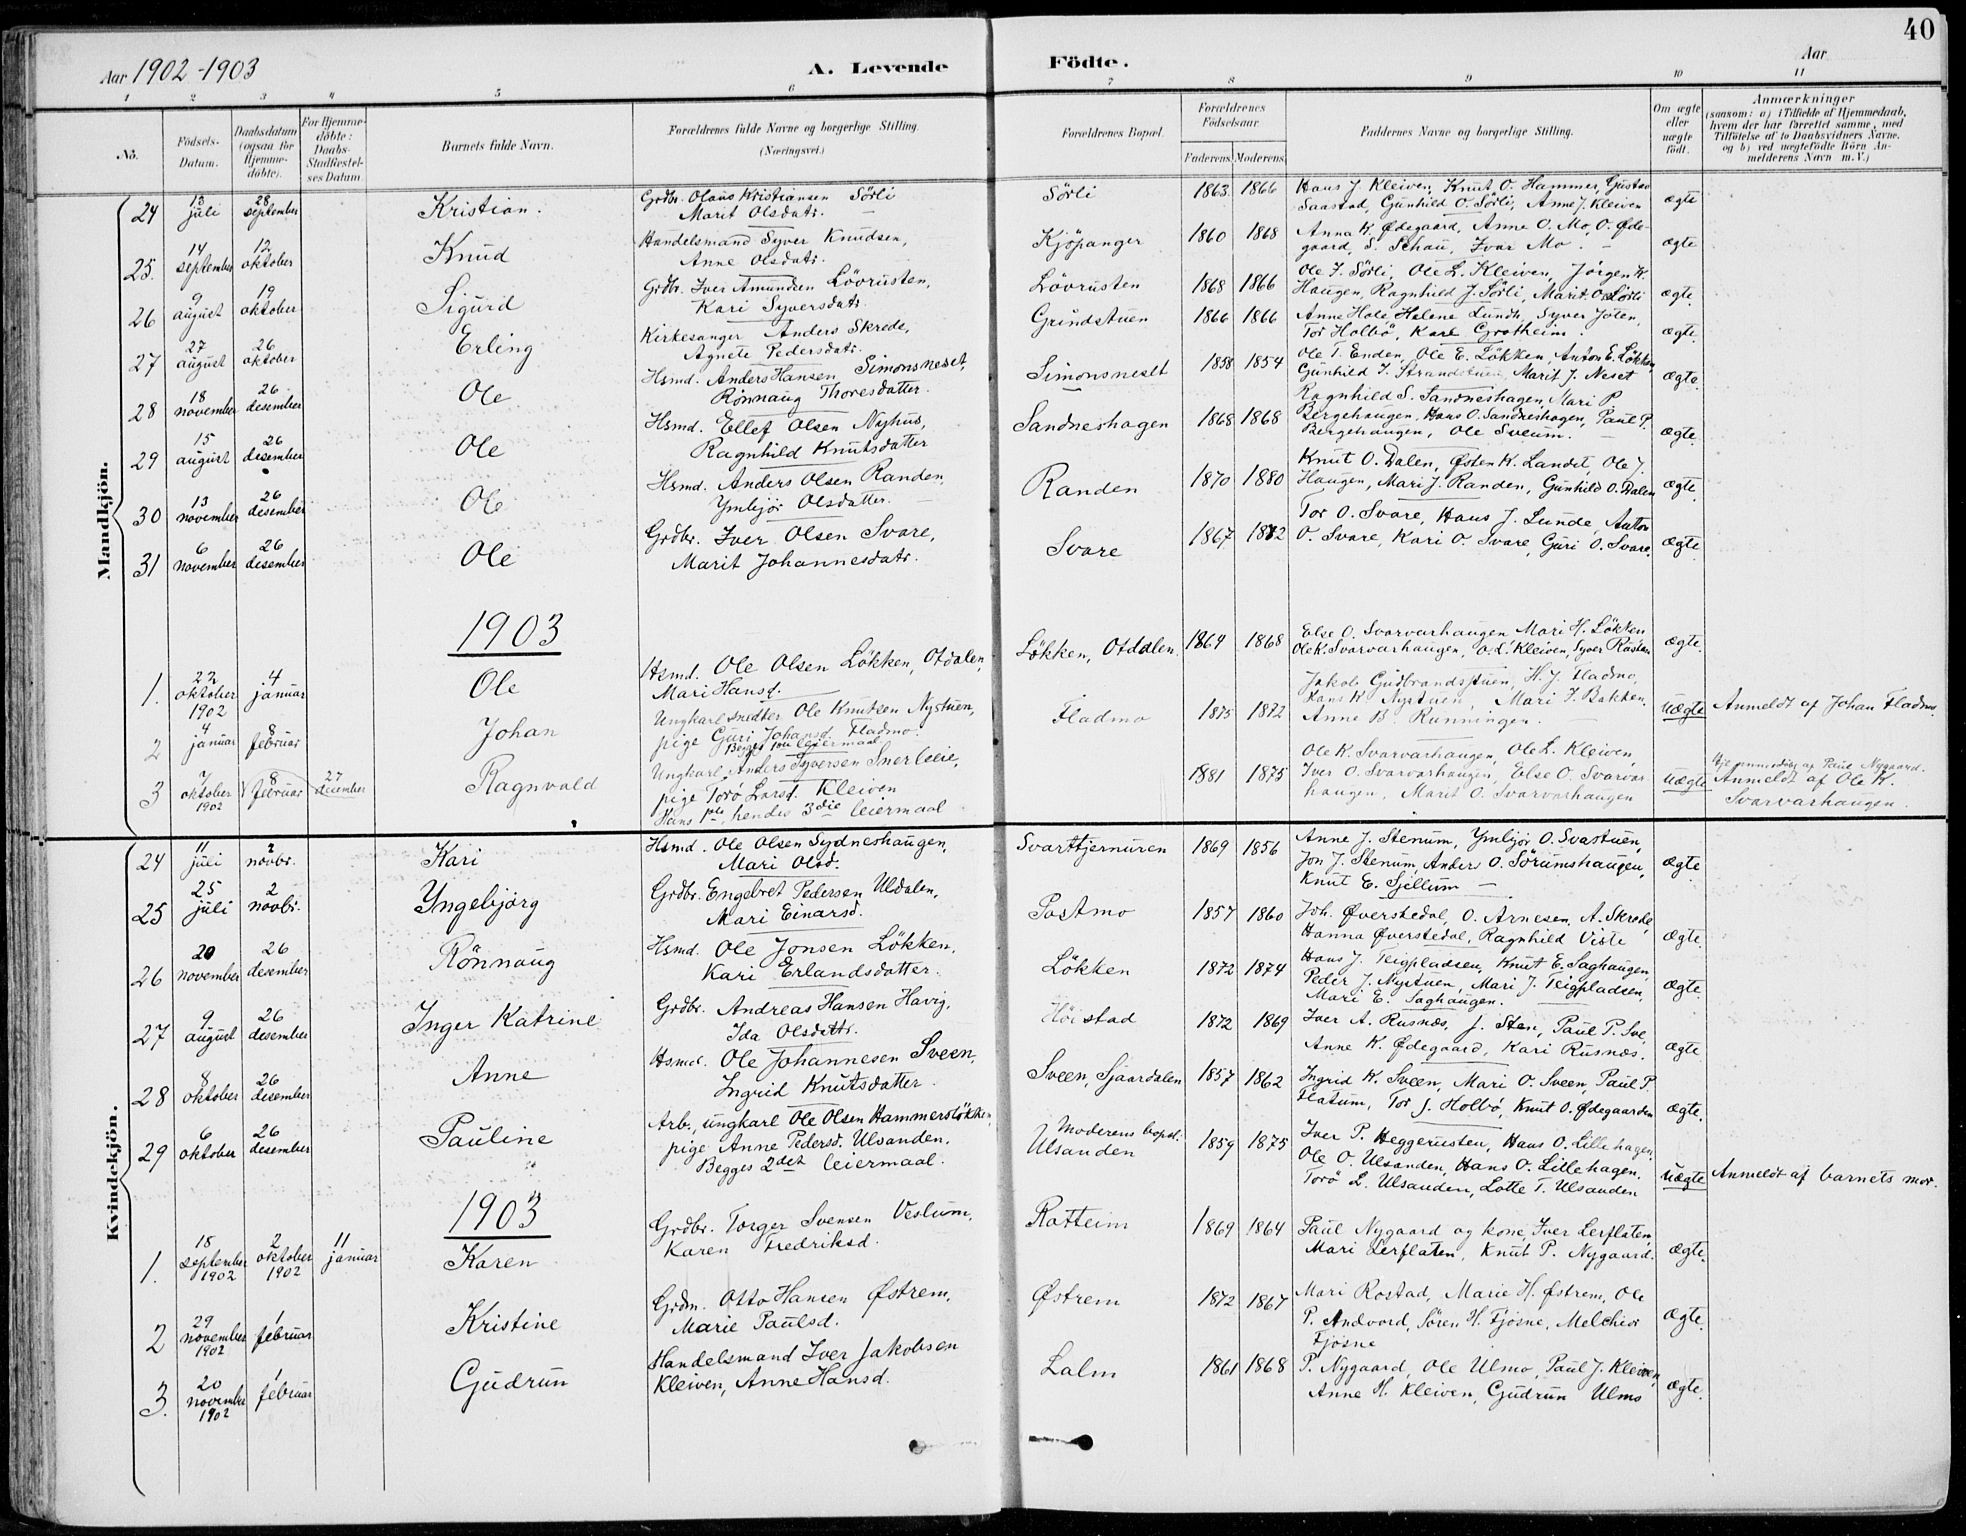 40
Aar 1902-1903
A. Levende
Födte.
Aar
1 2 3 4 5 6 7 8 9 10 11
No.
Födsels-
Datum.
Daabsdatum
(ogsaa for
Hjemme-
döbte).
For Hjemme-
döbte:
Daabs-
Stadfæstel-
ses Datum.
Barnets fulde Navn.
Forældrenes fulde Navne og borgerlige Stilling.
(Næringsvei.)
Forældrenes Bopæl.
Forældrenes
Födselsaar.
Faderens. Moderens.
Faddernes Navne og borgerlige Stilling.
Om ægte
eller
uægte
födt.
Anmærkninger
(saasom: a) i Tilfælde af Hjemmedaab,
hvem der har forrettet samme, med
Tilföielse af to Daabsvidners Navne,
og b) ved uægtefödte Börn An-
melderens Navn m. V.)
Mandkjön.
24 13 juli 28 september Kristian.
Grdbr. Olaus Kristiansen Sörli
Marit Olsdatr. —
Sörli 1863 1866
Hans J. Kleiven, Knut O. Hammer, Gustav
Saastad, Gunhild O. Sörli, Anne J. Kleiven
ægte
25. 14 september 12 oktober Knud
Handelsmand Syver Knudsen,
Anne Olsdatr.
Kjöpanger 1860 1868
Anna K. Ødegaard, Anne O. Mo, O. Øde-
gaard, S. Schau, Ivar Mo. —
ægte
26 9 august 19 oktober Sigurd
Grdbr. Iver Amundsen Lövrusten,
Kari Syversdatr.
Lövrusten 1868 1866
Ole J. Sörli, Ole L. Kleiven, Jörgen K.
Haugen, Ragnhild J. Sörli, Marit O. Sörli
ægte.
27 27 august 26 oktober Erling
Kirkesanger Anders Skrede,
Agnete Pedersdatr.
Grindstuen 1866 1866
Anne Hole Helene Lunde, Syver Joten,
Tor Holbö, Karl Grotheim.
ægte.
28 18 november 26 desember Ole
Hsmd. Anders Hansen Simonsneset,
Rönnaug Thoresdatter
Simonsneset 1858 1854
Ole T. Enden, Ole E. Lökken, Anton E. Lökken,
Gunhild I. Strandstuen, Marit J. Neset
ægte.
29 15 august 26 desember Ole
Hsmd. Ellef Olsen Nyhus,
Ragnhild Knutsdatter
Sandneshagen 1868 1868
Ragnhild S. Sandneshagen, Mari P.
Bergehaugen, Hans O. Sandneshagen, Paul P.
Bergehaugen, Ole Sveum. —
ægte.
30 13 november 26 desember Ole
Hsmd. Anders Olsen Randen,
Ymbjör Olsdatter. —
Randen 1870 1880
Knut O. Dalen, Østen K. Landet, Ole J.
Haugen, Mari J. Randen, Gunhild O. Dalen
ægte.
31 6 november 26 desember Ole
Grdbr. Iver Olsen Svare,
Marit Johannesdatr.
Svare 1867 1872
Tor O. Svare, Hans J. Lunde, Anton
O. Svare, Kari O. Svare, Guri O. Svare.
ægte.
1903
1. 22 oktober 1902 4 januar Ole
Hsmd. Ole Olsen Lökken, Otdalen,
Mari Hansd. —
Lökken, Otdalen. 1864 1868
Else O. Svarvarhaugen Mari H. Lökken
Ole K. Svarvarhaugen, O. L. Kleiven, Syver Råstøen
ægte.
2 4 januar 8 februar Johan
Ungkarl snedker Ole Knutsen Nystuen,
pige Guri Johansd. Fladmo.
Begges 1ste leiermaal
Fladmo 1875 1872
Jakob Gudbrandsstuen, H. J. Fladmo,
Hans K. Nystuen, Mari J. Bakken,
Anne B. Runningen. —
uægte
Anmeldt af Johan Fladmo.
3 7 oktober 1902 8 februar 27 december Ragnvald
Ungkarl Anders Syversen Snerleeie,
pige Torö Larsd. Kleiven
Hans 1ste, hendes 3die leiermaal
1881 1875
Ole K. Svarvarhaugen, Ole L. Kleiven,
Iver O. Svarvarhaugen, Else O. Svarvar-
haugen, Marit O. Svarvarhaugen
uægte
Hjemmedöbt af Paul Nygaard.
Anmeldt af Ole K.
Svarvarhaugen.
Kvindekjön.
24 11 juli 2 novbr. Kari
Hsmd. Ole Olsen Sydneshaugen,
Mari Olsd.
Svarttjernuren 1869 1856
Anne J. Stenum, Ymbjör O. Svastuen,
Jon J. Stenum, Anders O. Sörumshaugen,
Knut E. Sjellum —
ægte
25 25 juli 2 novbr. Yngebjörg
Grdbr. Engebret Pedersen Uldalen,
Mari Einarsd.
Sostmo 1857 1860
Joh. Øverstedal, O. Arnesen, A. Skrede,
Hanna Øverstedal, Ragnhild Viste
ægte.
26 20 november 26 desember Rönnaug
Hsmd. Ole Jonsen Lökken,
Kari Erlandsdatter.
Lökken 1872 1874
Hans J. Teigpladsen, Knut E. Saghaugen,
Peder J. Nystuen, Mari J. Teigpladsen,
Mari E. Saghaugen.
ægte.
27 9 august 26 desember Inger Katrine
Grdbr. Andreas Hansen Havig,
Ida Olsdattr.
Höistad 1872 1869
Iver A. Rusnæs, J. Sten, Paul P. Sve,
Anne K. Ødegaard, Kari Rusnæs.
ægte
28 8 oktober 26 desember Anne
Hsmd. Ole Johannesen Sveen,
Ingrid Knutsdatter.
Sveen, Sjaardalen 1857 1862
Ingrid K. Sveen, Mari O. Sveen, Paul P.
Flatum, Tor J. Holbö, Knut O. Ødegaarden
ægte.
29 6 oktober 26 desember Pauline
Arb., ungkarl Ole Olsen Hammerslökken,
pige Anne Pedersd. Ulsanden.
Begges 2det leiermaal.
Moderens bopæl:
Ulsanden 1859 1875
Iver P. Heggerusten, Hans O. Lillehagen,
Ole O. Ulsanden, Hans O. Lillehagen,
Torö L. Ulsanden, Lotte T. Ulsanden
uægte
Anmeldt af barnets mor.
1903
1. 18 september 1902 2 oktober 1902 11 januar Karen
Grdbr. Torger Svensen Veslum,
Karen Fredriksd.
Rotteim 1869 1864
Paul Nygaard og kone, Iver Lerflaten,
Mari Lerflaten, Knut P. Nygaard.
ægte.
2 29 november 1902 1 februar Kristine
Grdm. Otto Hansen Østrem,
Marie Paulsd.
Østrem 1872 1867
Mari Rostad, Marie H. Østrem, Ole
P. Andvord, Sören H. Fjösne, Melchior
Fjösne
ægte.
3. 20 november 1902 1 februar Gudrun
Handelsmand Iver Jakobsen
Kleiven, Anne Hansd.
Lalm 1861 1868
P. Nygaard, Ole Ulmo, Paul J. Kleiven,
Anne H. Kleiven, Gudrun Ulmo
ægte.